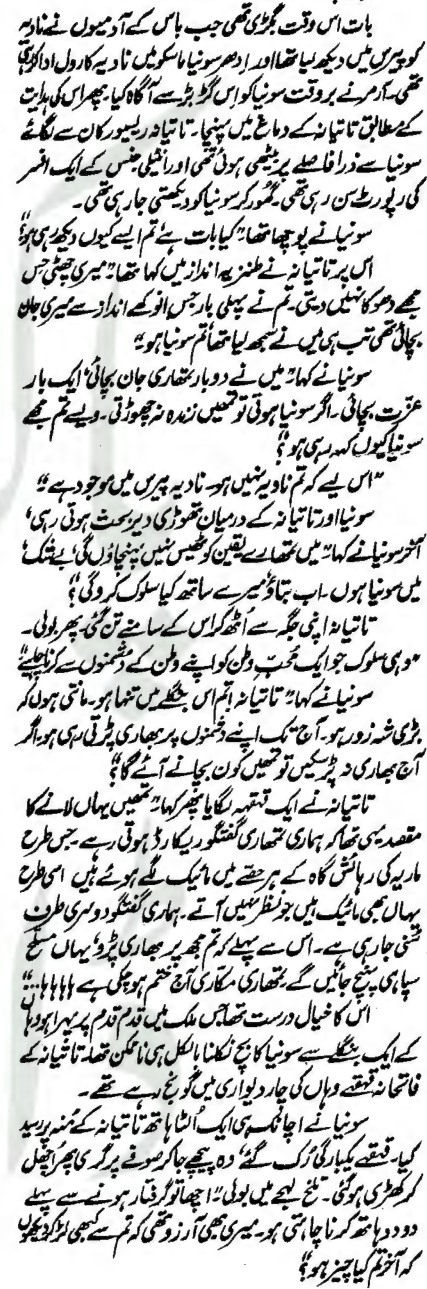 بات اس وقت بگڑی تھی جب باس کے آدمیوں نے نادیہ
کو پیرس میں دیکھ لیا تھا اور ادھر سونیا ماسکو میں نادیہ کا رول ادا کر رہی
تھی۔ آرمر نے بر وقت سونیا کو اس گڑبڑ سے آگاہ کیا۔ پھر اس کی ہدایت
کے مطابق تاتیانہ کے دماغ میں پہنچا۔ تاتیانہ ریسیور کان سے لگائے
سونیا سے ذرا فاصلے پر بیٹھی ہوئی تھی اور انٹیلی جنس کے ایک افسر
کی رپورٹ سن رہی تھی۔ گھور کر سونیا کو دیکھتی جا رہی تھی۔
سونیا نے پوچھا تھا: "کیا بات ہے تم ایسے کیوں دیکھ رہی ہو؟"
اس پر تاتیانہ نے طنزیہ انداز میں کہا تھا: "میری چھٹی حس
مجھے دھوکا نہیں دیتی۔ تم نے پہلی بار جس انوکھے انداز سے میری جان
بچائی تھی تب ہی میں نے سمجھ لیا تھا تم سونیا ہو۔"
سونیا نے کہا: "میں نے دو بار تمھاری جان بچائی، ایک بار
عزت بچائی۔ اگر سونیا ہوتی تو تمھیں زندہ نہ چھوڑتی۔ ویسے تم مجھے
سونیا کیوں کہہ رہی ہو؟"
"اس لیے کہ تم نادیہ نہیں ہو۔ نادیہ پیرس میں موجود ہے۔"
سونیا اور تاتیانہ کے درمیان تھوڑی دیر بحث ہوتی رہی،
آخر سونیا نے کہا: "میں تمھارے یقین کو ٹھیس نہیں پہنچاؤں گی، بے شک
میں سونیا ہوں۔ اب بتاؤ میرے ساتھ کیا سلوک کرو گی؟"
تاتیانہ اپنی جگہ سے اُٹھ کر اس کے سامنے تن گئی۔ پھر بولی۔
"وہی سلوک جو ایک محبِّ وطن کو اپنے وطن کے دشمنوں سے کرنا چاہیے"
سونیا نے کہا: "تاتیانہ! تم اس بنگلے میں تنہا ہو۔ مانتی ہوں کہ
بڑی شہ زور ہو۔ آج تک اپنے دشمنوں پر بھاری پڑتی رہی ہو۔ اگر
آج بھاری نہ پڑ سکیں تو تمھیں کون بچانے آئے گا؟"
تاتیانہ نے ایک قہقہہ لگایا پھر کہا: "تمھیں یہاں لانے کا
مقصد یہی تھا کہ ہماری تمھاری گفتگو ریکارڈ ہوتی رہے۔ جس طرح
ماریہ کی رہائش گاہ کے ہر حصے میں مائیک لگے ہوئے ہیں اسی طرح
یہاں بھی مائیک ہیں جو نظر نہیں آتے۔ ہماری گفتگو دوسری طرف
سُنی جا رہی ہے۔ اس سے پہلے کہ تم مجھ پر بھاری پڑو، یہاں مسلح
سپاہی پہنچ جائیں گے۔ تمھاری مکاری آج ختم ہو چکی ہے ہاہاہاہا...."
اس کا خیال درست تھا جس ملک میں قدم قدم پر پہرا ہو وہاں
کے ایک بنگلے سے سونیا کا بچ نکلنا بالکل ہی ناممکن تھا۔ تاتیانہ کے
فاتحانہ قہقہے وہاں کی چار دیواری میں گونج رہے تھے۔
سونیا نے اچانک ہی ایک اُلٹا ہاتھ تاتیانہ کے مُنہ پر رسید
کیا۔ قہقہے یکبارگی رُک گئے، وہ پیچھے جا کر صوفے پر گری پھر اُچھل
کر کھڑی ہو گئی۔ تلخ لہجے میں بولی: "اچھا تو گرفتار ہونے سے پہلے
دو دو ہاتھ کرنا چاہتی ہو۔ میری بھی آرزو تھی کہ تم سے کبھی لڑ کر دیکھوں
کہ آخر تم کیا چیز ہو؟"